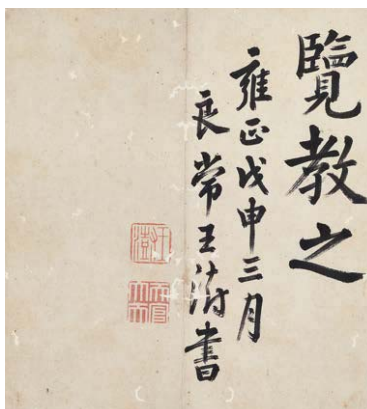 覽教之
雍正戊申三月
良常王澍書